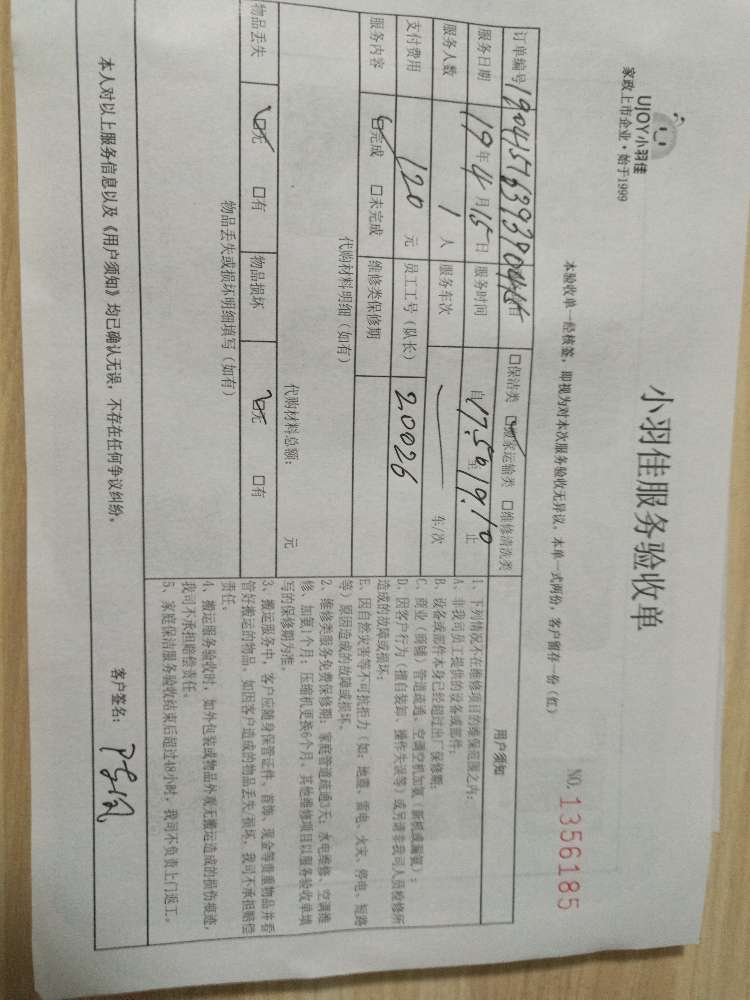 UJOY小羽佳
家政上市企业·始于1999
小羽佳服务验收单
本验收单一经核签，即视为对本次服务验收无异议，本单一式两份，客户留存一份（红）
NO. 1356185
订单编号
□保洁类 ☑搬家运输类 □维修清洗类
服务日期 19 年 4 月 15 日 服务时间 自 17.50 至 19.10 止
服务人数 1 人 服务车次 车/次
支付费用 120 元 员工工号（队长） 20026
服务内容 ☑完成 □未完成 维修类保修期
代购材料明细（如有）
代购材料总额： 元
物品丢失 ☑无 □有 物品损坏 ☑无 □有
物品丢失或损坏明细填写（如有）
用户须知
1、下列情况不在维修项目的维保范围之内：
A、非我司员工提供的设备或部件；
B、设备或部件本身已经超过出厂保修期；
C、商业（商铺）管道疏通、空调空机加氨（新机或漏氨）；
D、因客户行为（擅自装卸、操作失误等）或另请非我司人员检修所
造成的故障或损坏；
E、因自然灾害等不可抗拒力（如：地震、雷电、火灾、停电、短路
等）原因造成的故障或损坏。
2、维修类服务免费保修期：家庭管道疏通3天；水电维修、空调维
修、加氨1个月；压缩机更换6个月，其他维修项目以服务验收单填
写的保修期为准。
3、搬运服务中，客户应随身保管证件、首饰、现金等贵重物品并看
管好搬运的物品，如因客户造成的物品丢失/损坏，我司不承担赔偿
责任。
4、搬运服务验收时，如外包装或物品外观无搬运造成的损伤痕迹，
我司不承担赔偿责任。
5、家庭保洁服务验收结束后超过48小时，我司不负责上门返工。
本人对以上服务信息以及《用户须知》均已确认无误，不存在任何争议纠纷。
客户签名：